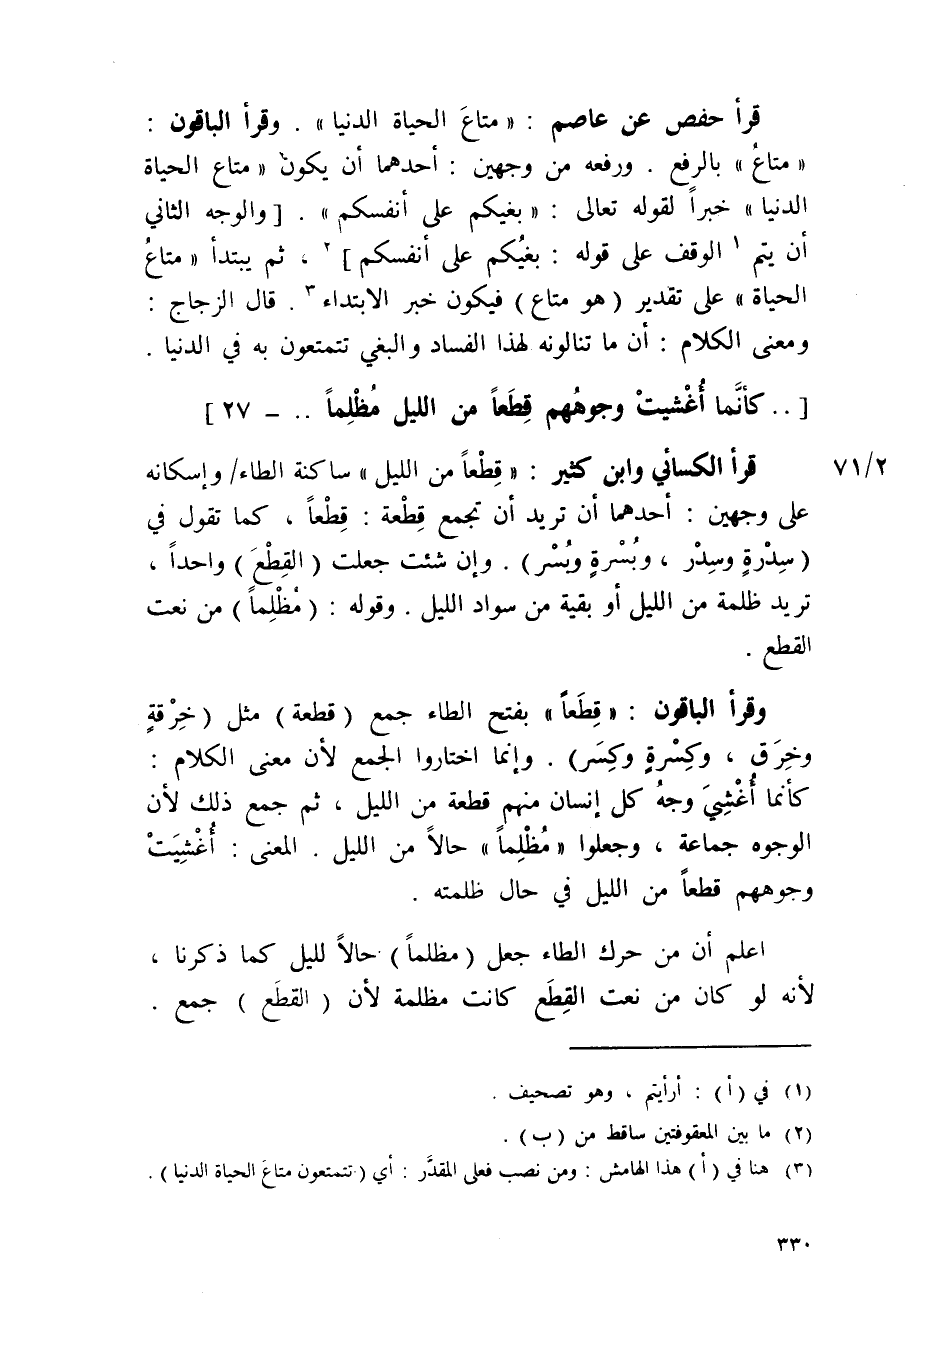 قرأ حفص عن عاصم : « متاعَ الحياة الدنيا » . وقرأ الباقون :
« متاعُ » بالرفع . ورفعه من وجهين : أحدهما أن يكون « متاع الحياة
الدنيا » خبراً لقوله تعالى : « بغيكم على أنفسكم » . [ والوجه الثاني
أن يتم ١ الوقف على قوله : بغيُكم على أنفسكم ] ٢ ، ثم يبتدأ « متاعُ
الحياة » على تقدير ( هو متاع ) فيكون خبر الابتداء ٣ . قال الزجاج :
ومعنى الكلام : أن ما تنالونه لهذا الفساد والبغي تتمتعون به في الدنيا .
[ .. كأنَّما أُغْشيتْ وجوهُهم قِطَعاً من الليل مُظْلِماً .. – ٢٧ ]
٧١/٢ قرأ الكسائي وابن كثير : « قِطْعاً من الليل » ساكنة الطاء/ وإسكانه
على وجهين : أحدهما أن تريد أن تجمع قِطْعة : قِطْعاً ، كما تقول في
( سِدْرةٍ وسِدْر ، وبُسْرةٍ وبُسْر ) . وإن شئت جعلت ( القِطْعَ ) واحداً ،
تريد ظلمة من الليل أو بقية من سواد الليل . وقوله : ( مُظْلِماً ) من نعت
القطع .
وقرأ الباقون : « قِطَعاً » بفتح الطاء جمع ( قطعة ) مثل ( خِرْقةٍ
وخِرَق ، وكِسْرةٍ وكِسَر ) . وإنما اختاروا الجمع لأن معنى الكلام :
كأنما أُغْشِيَ وجهُ كل إنسان منهم قطعة من الليل ، ثم جمع ذلك لأن
الوجوه جماعة ، وجعلوا « مُظْلِماً » حالاً من الليل . المعنى : أُغْشِيَتْ
وجوههم قطعاً من الليل في حال ظلمته .
اعلم أن من حرك الطاء جعل ( مظلماً ) حالاً لليل كما ذكرنا ،
لأنه لو كان من نعت القِطَع كانت مظلمة لأن ( القطَع ) جمع .
(١) في ( أ ) : أرأيتم ، وهو تصحيف .
(٢) ما بين المعقوفتين ساقط من ( ب ) .
(٣) هنا في ( أ ) هذا الهامش : ومن نصب فعلى المقدَّر : أي ( تتمتعون متاعَ الحياة الدنيا ) .
٣٣٠